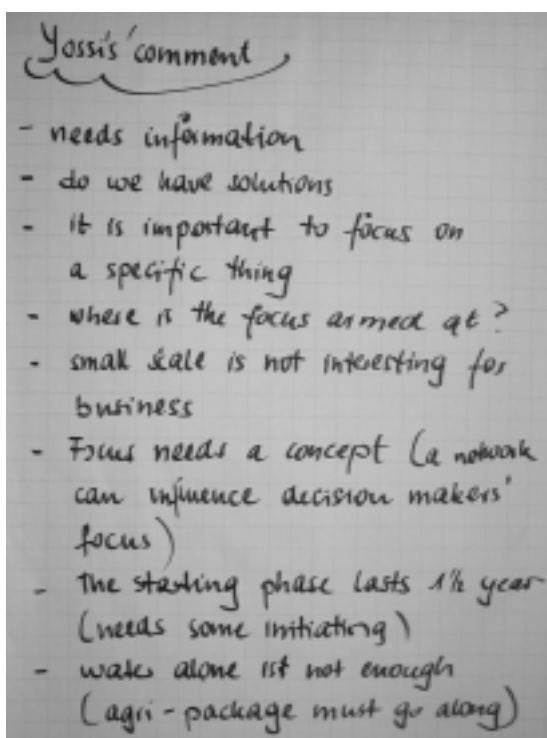 Yossi's comment
- needs information
- do we have solutions
- it is important to focus on
a specific thing
- where is the focus armed at?
- small scale is not interesting for
business
- Focus needs a concept (a network
can influence decision makers'
focus)
- The starting phase lasts 1½ year
(needs some initiating)
- water alone ist not enough
(agri-package must go along)